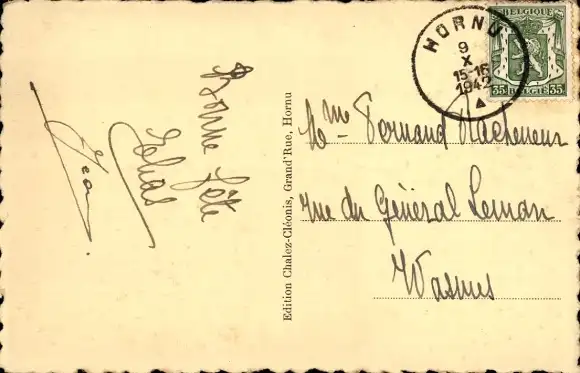 Bonne fête
Jean
Edition Chalez-Cléonis, Grand'Rue, Hornu
HORNU
9
X
15-16
1942
BELGIQUE
35 BELGIË 35
Mme Fernand Racheneur
rue du Général Leman
Wasmes